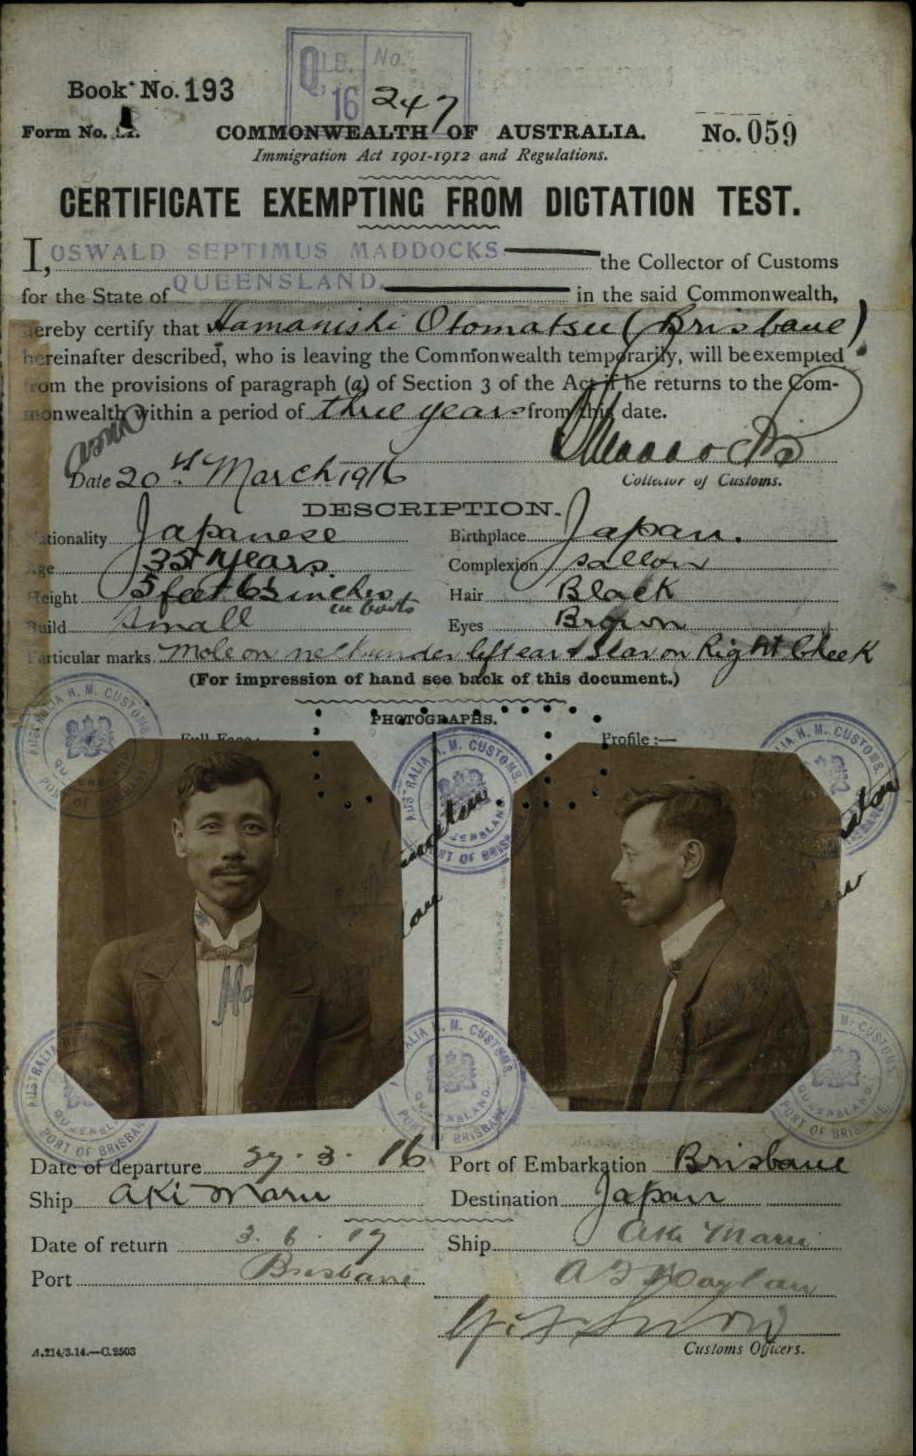 QLD. No.
Q. 16
Book No. 193
247
Form No. 21.
COMMONWEALTH OF AUSTRALIA.
No. 059
Immigration Act 1901-1912 and Regulations.
CERTIFICATE EXEMPTING FROM DICTATION TEST.
I, OSWALD SEPTIMUS MADDOCKS the Collector of Customs
for the State of QUEENSLAND. in the said Commonwealth,
hereby certify that Hamanishi Otomatsu (Brisbane)
hereinafter described, who is leaving the Commonwealth temporarily, will be exempted
from the provisions of paragraph (a) of Section 3 of the Act if he returns to the Com-
monwealth within a period of three years from this date.
Date 20th March 1916
Collector of Customs.
DESCRIPTION.
Nationality Japanese Birthplace Japan.
Age 35 years. Complexion Sallow
Height 5 feet 6½ inches in boots Hair Black
Build Small Eyes Brown
Particular marks Mole on neck under left ear & Scar on Right Cheek
(For impression of hand see back of this document.)
PHOTOGRAPHS.
Full Face:—
Profile:—
AUSTRALIA H. M. CUSTOMS. QUEENSLAND. PORT OF BRISBANE
AUSTRALIA H. M. CUSTOMS. QUEENSLAND. PORT OF BRISBANE
AUSTRALIA H. M. CUSTOMS. QUEENSLAND. PORT OF BRISBANE
AUSTRALIA H. M. CUSTOMS. QUEENSLAND. PORT OF BRISBANE
AUSTRALIA H. M. CUSTOMS. QUEENSLAND. PORT OF BRISBANE
AUSTRALIA H. M. CUSTOMS. QUEENSLAND. PORT OF BRISBANE
Date of departure 27.3.16 Port of Embarkation Brisbane
Ship Aki Maru Destination Japan
Date of return 3.6.17 Ship Aki Maru
Port Brisbane
Customs Officers.
A.214/3.14.—C.2503